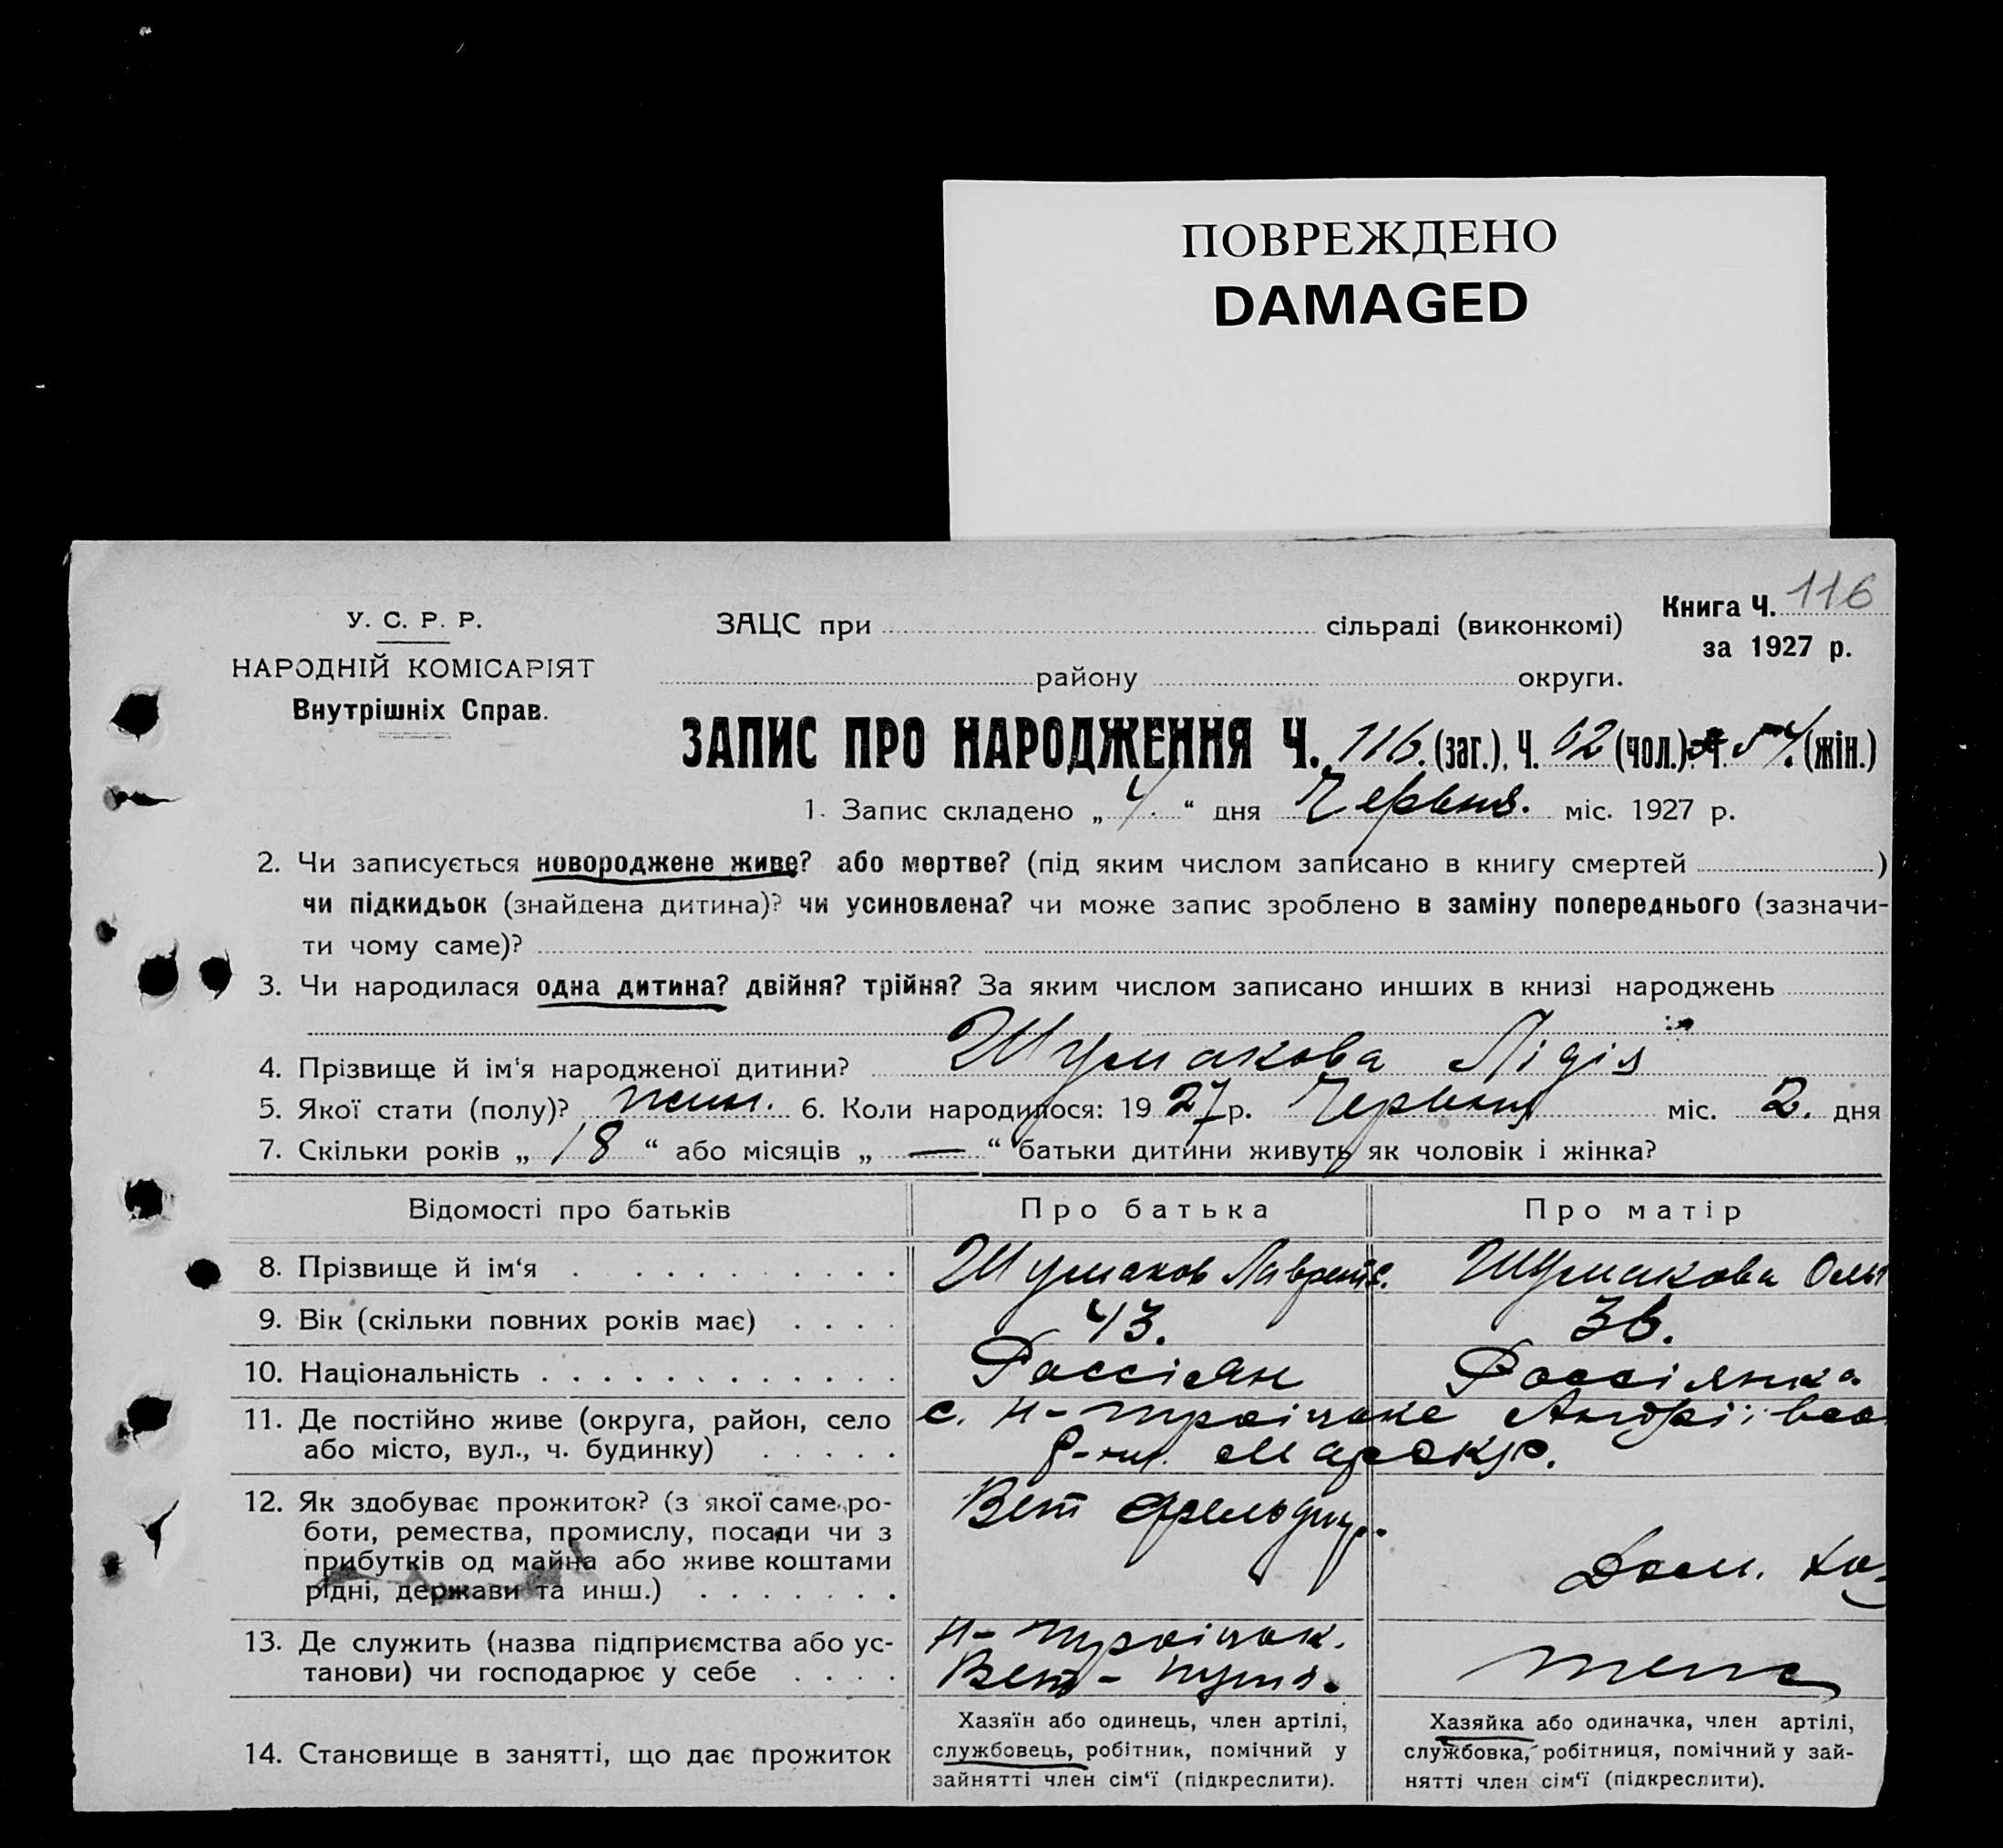 ПОВРЕЖДЕНО
DAMAGED
Книга Ч. 116
за 1927 р.
У. С. Р. Р.
НАРОДНІЙ КОМІСАРІЯТ
Внутрішніх Справ.
ЗАЦС при сільраді (виконкомі)
району округи.
ЗАПИС ПРО НАРОДЖЕННЯ Ч. 116. (заг.). Ч. 62 (чол.). Ч. 54. (жін.)
1. Запис складено „4.“ дня Червня. міс. 1927 р.
2. Чи записується новороджене живе? або мертве? (під яким числом записано в книгу смертей )
чи підкидьок (знайдена дитина)? чи усиновлена? чи може запис зроблено в заміну попереднього (зазначи-
ти чому саме)?
3. Чи народилася одна дитина? двійня? трійня? За яким числом записано инших в книзі народжень
4. Прізвище й ім‘я народженої дитини? Шумакова Лідія
5. Якої стати (полу)? жин. 6. Коли народилося: 1927 р. Червня міс. 2. дня
7. Скільки років „18“ або місяців „—“ батьки дитини живуть як чоловік і жінка?
Відомості про батьків Про батька Про матір
8. Прізвище й ім‘я Шумаков Лаврент. Шумакова Оль
9. Вік (скільки повних років має) 43. 36.
10. Національність Россіян Россіянка
11. Де постійно живе (округа, район, село
або місто, вул., ч. будинку)
с. Н-Троіцьке Андріівсо
р-ну. Марокр.
12. Як здобуває прожиток? (з якої саме ро-
боти, ремества, промислу, посади чи з
прибутків од майна або живе коштами
рідні, держави та инш.)
Вет фельдшер
Дом. хоз
13. Де служить (назва підприємства або ус-
танови) чи господарює у себе
Н-Троіцьк.
Вет-пункт.
14. Становище в занятті, що дає прожиток
Хазяїн або одинець, член артілі,
службовець, робітник, помічний у
зайнятті член сім‘ї (підкреслити).
Хазяйка або одиначка, член артілі,
службовка, робітниця, помічний у зай-
нятті член сім‘ї (підкреслити).